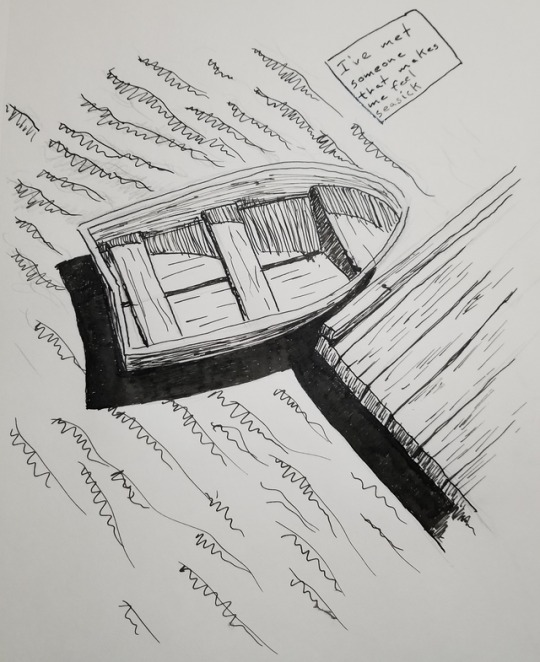 I've met
someone
that makes
me feel
seasick